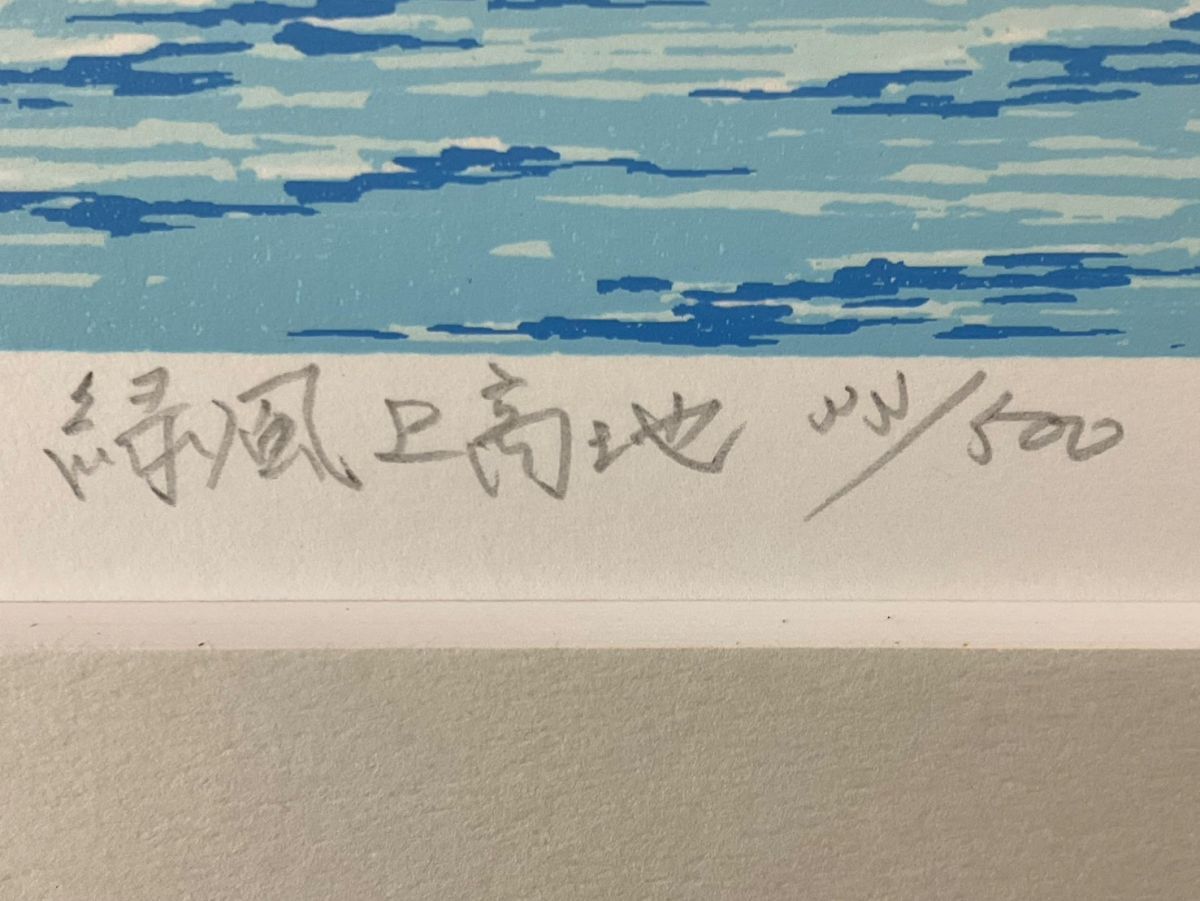 緑風上高地 /500